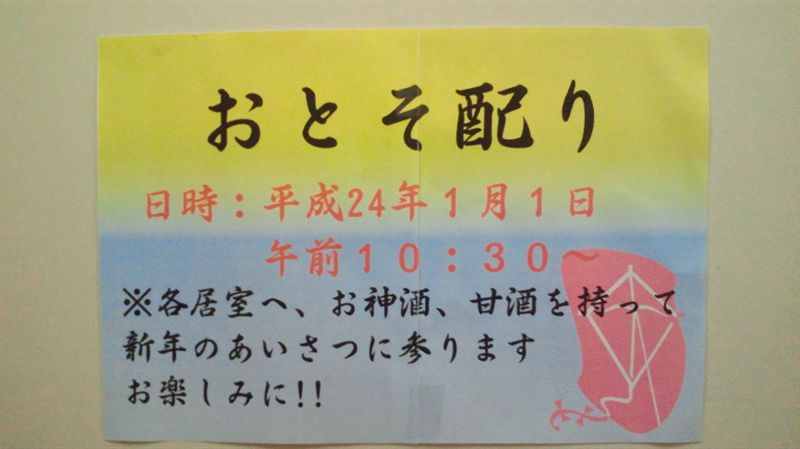 おとそ配り
日時：平成24年１月１日
午前１０：３０～
※各居室へ、お神酒、甘酒を持って
新年のあいさつに参ります
お楽しみに!!